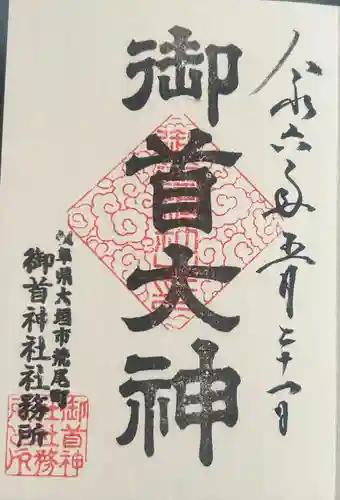 令和六年五月二十一日
御首大神
岐阜県大垣市荒尾町
御首神社社務所
御首神
社社務
所之印